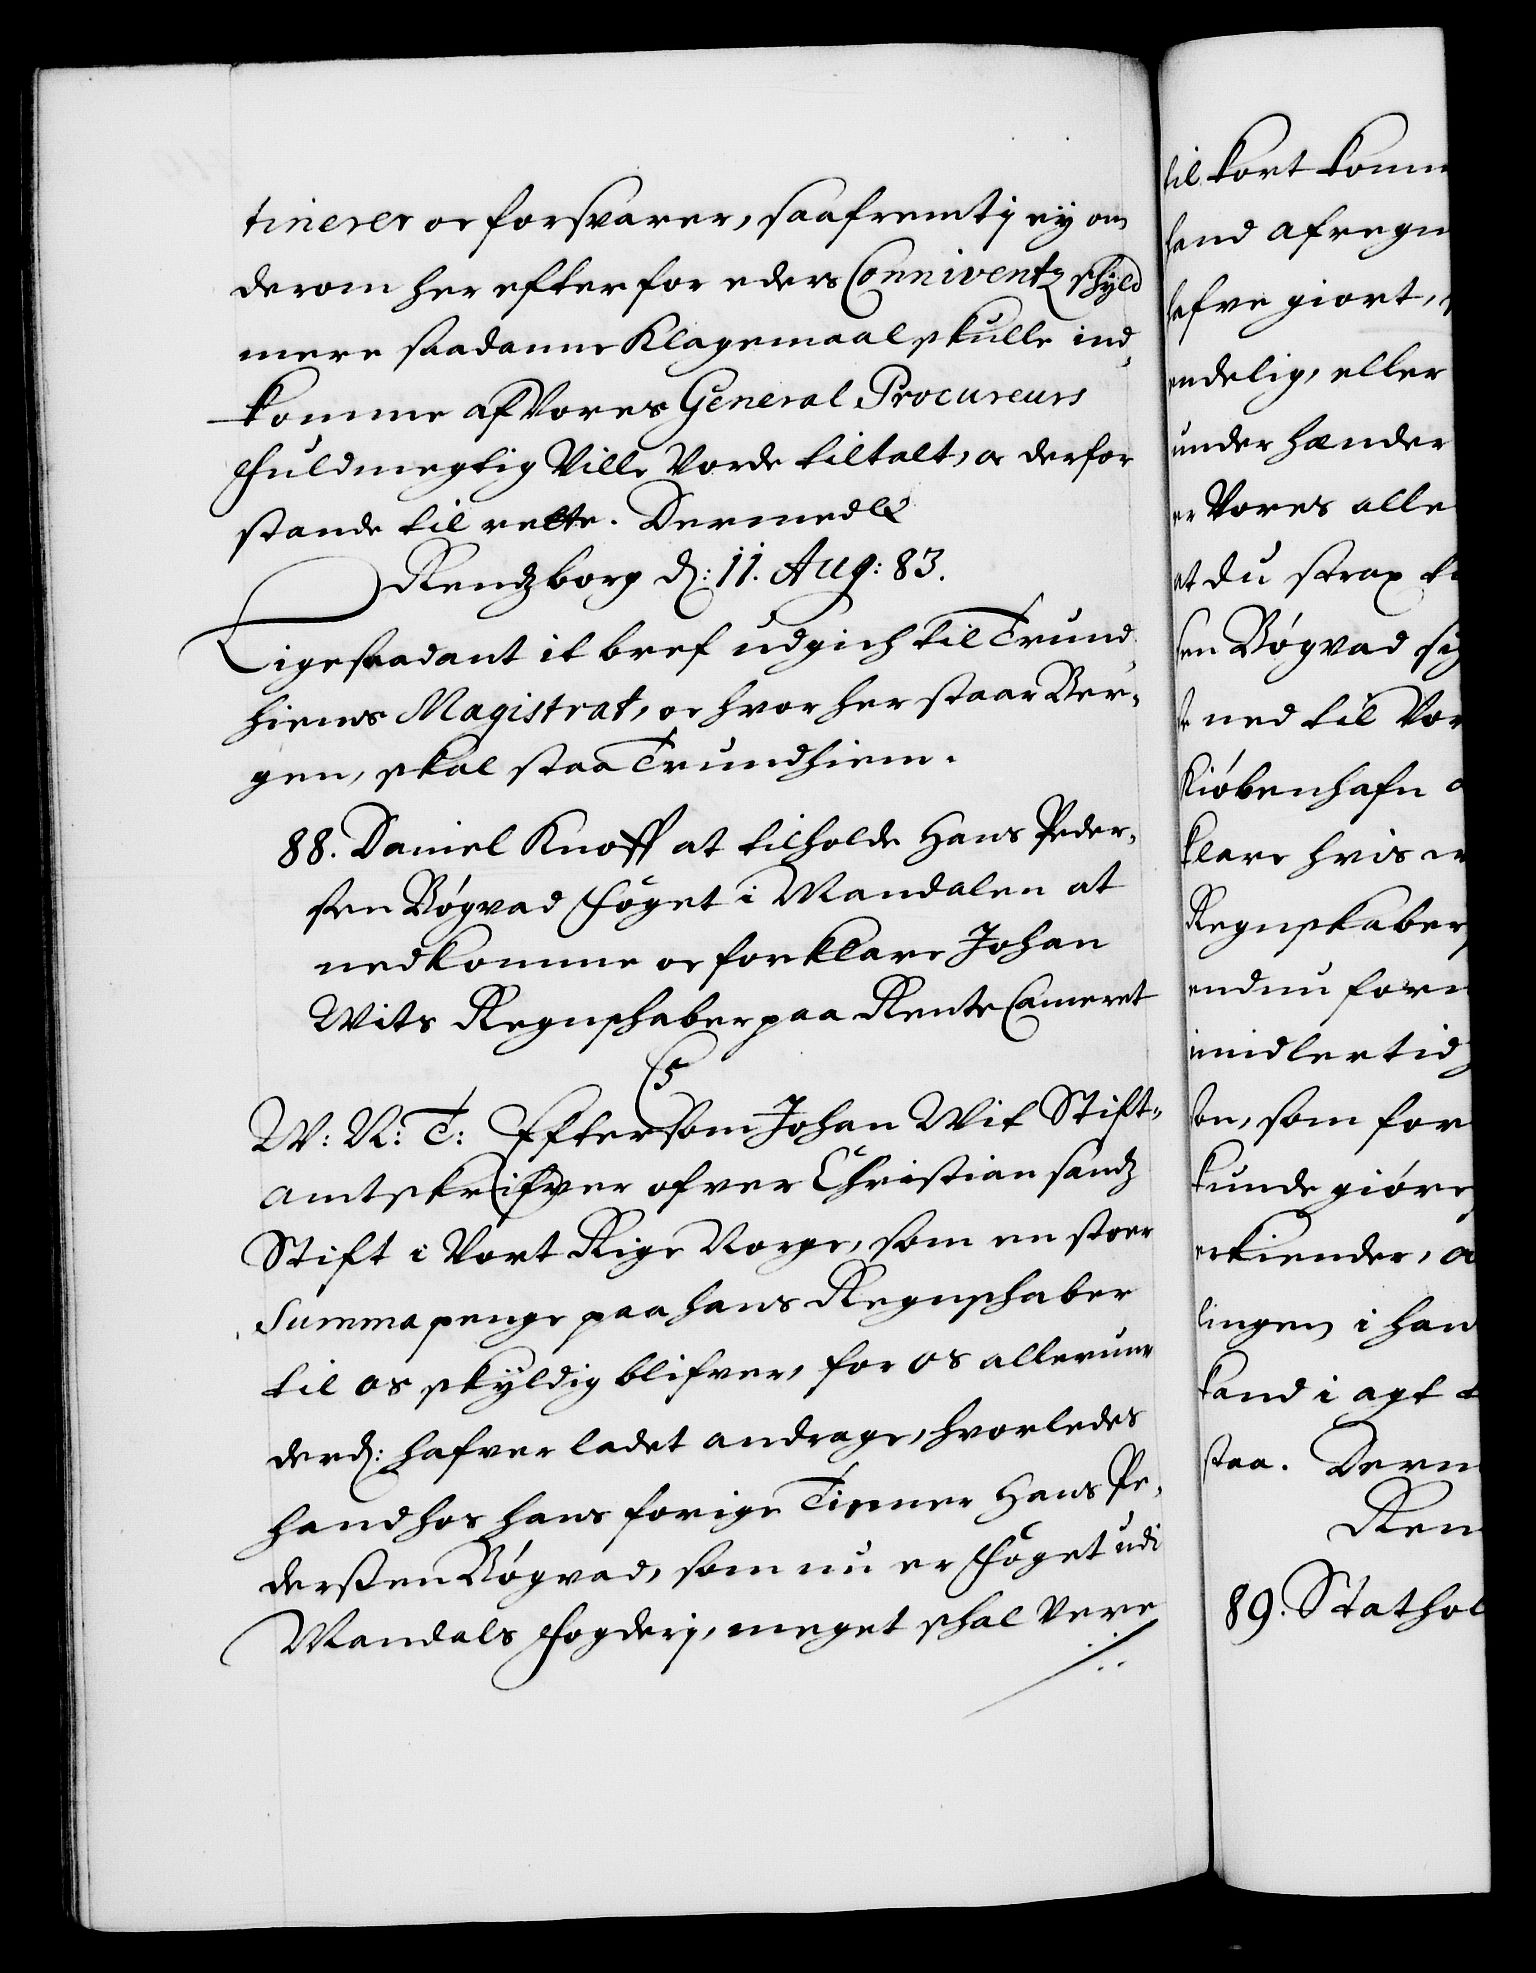 tinerer oc forsvarer, saafremt j ey om
derom her efter for eders Conniventz schyld
mere saadanne Klagemaal skulle ind-
komme af Vores General Procureurs
fuldmegtig Ville Vorde tiltalt, oc derfor
stande til rette. Dermed &
Rendzborg d: 11. Aug: 83.
Ligesaadant it bref udgich til Trund
hiems Magistrat, oc hvor her staar Ber-
gen, skal staa Trundhiem.
88. Daniel Knoff at tilholde Hans Peder-
sen Bógvad foget i Mandalen at
nedkomme oc forklare Johan
Wits Regnschaber paa Rente Cameret
C5
W: N: T: Eftersom Johan Wit Stift-
amtskrifver ofver Christiansandz
Stift i Vort Rige Norge, som en stoer
Summa penge paa hans Regnschaber
til os skyldig blifver, for os allerun
derd: hafver ladet andrage, hvorledes
hand hos hans forige Tienner Hans Pe-
derßen Bógvad, som nu er foget udi
Mandals fogderj, meget schal Vere
til kort komm
land afregn
hafve giort,
endelig, eller
under hænder
er Vores alle
at du strax ti
sen Bógvad sig
ned til Vor
Kióbenhafn o
klare hvis er
Regnskaber
endnu forn
imidlertid
son, som for
kunde gióre
erkiender, a
lingen i han
kand i agt t
staa. Derm
Ren
89. Stathol